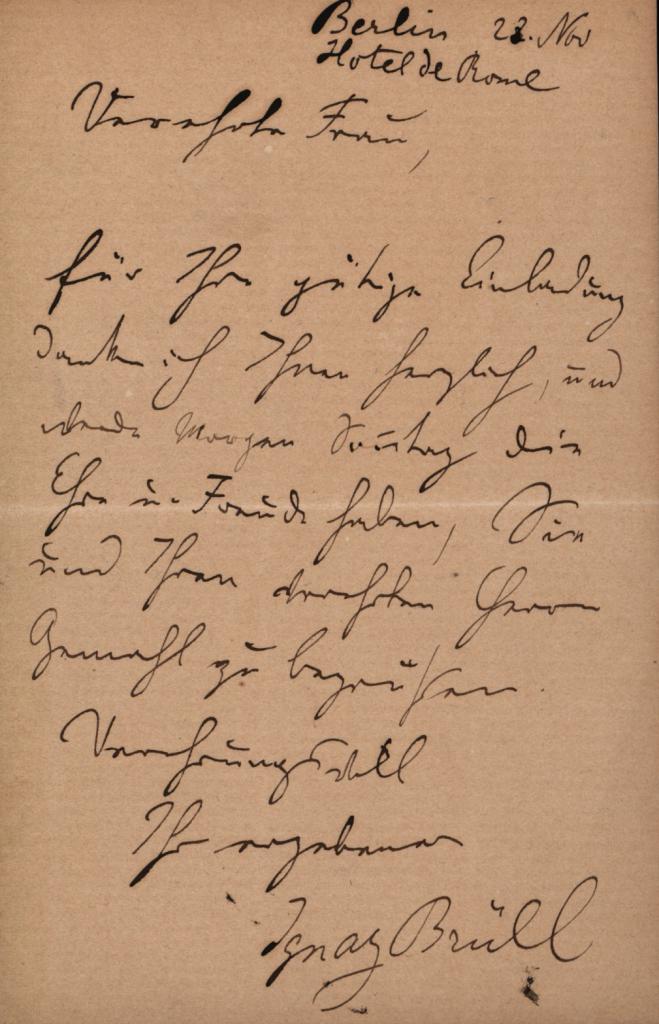 Berlin 23. Nov
Hotel de Rome
Verehrte Frau,
für Ihre gütige Einladung
danke ich Ihnen herzlich, und
werde Morgen Sonntag die
Ehre u. Freude haben, Sie
und Ihren verehrten Herrn
Gemahl zu begrüßen.
Verehrungsvoll
Ihr ergebener
Ignaz Brüll